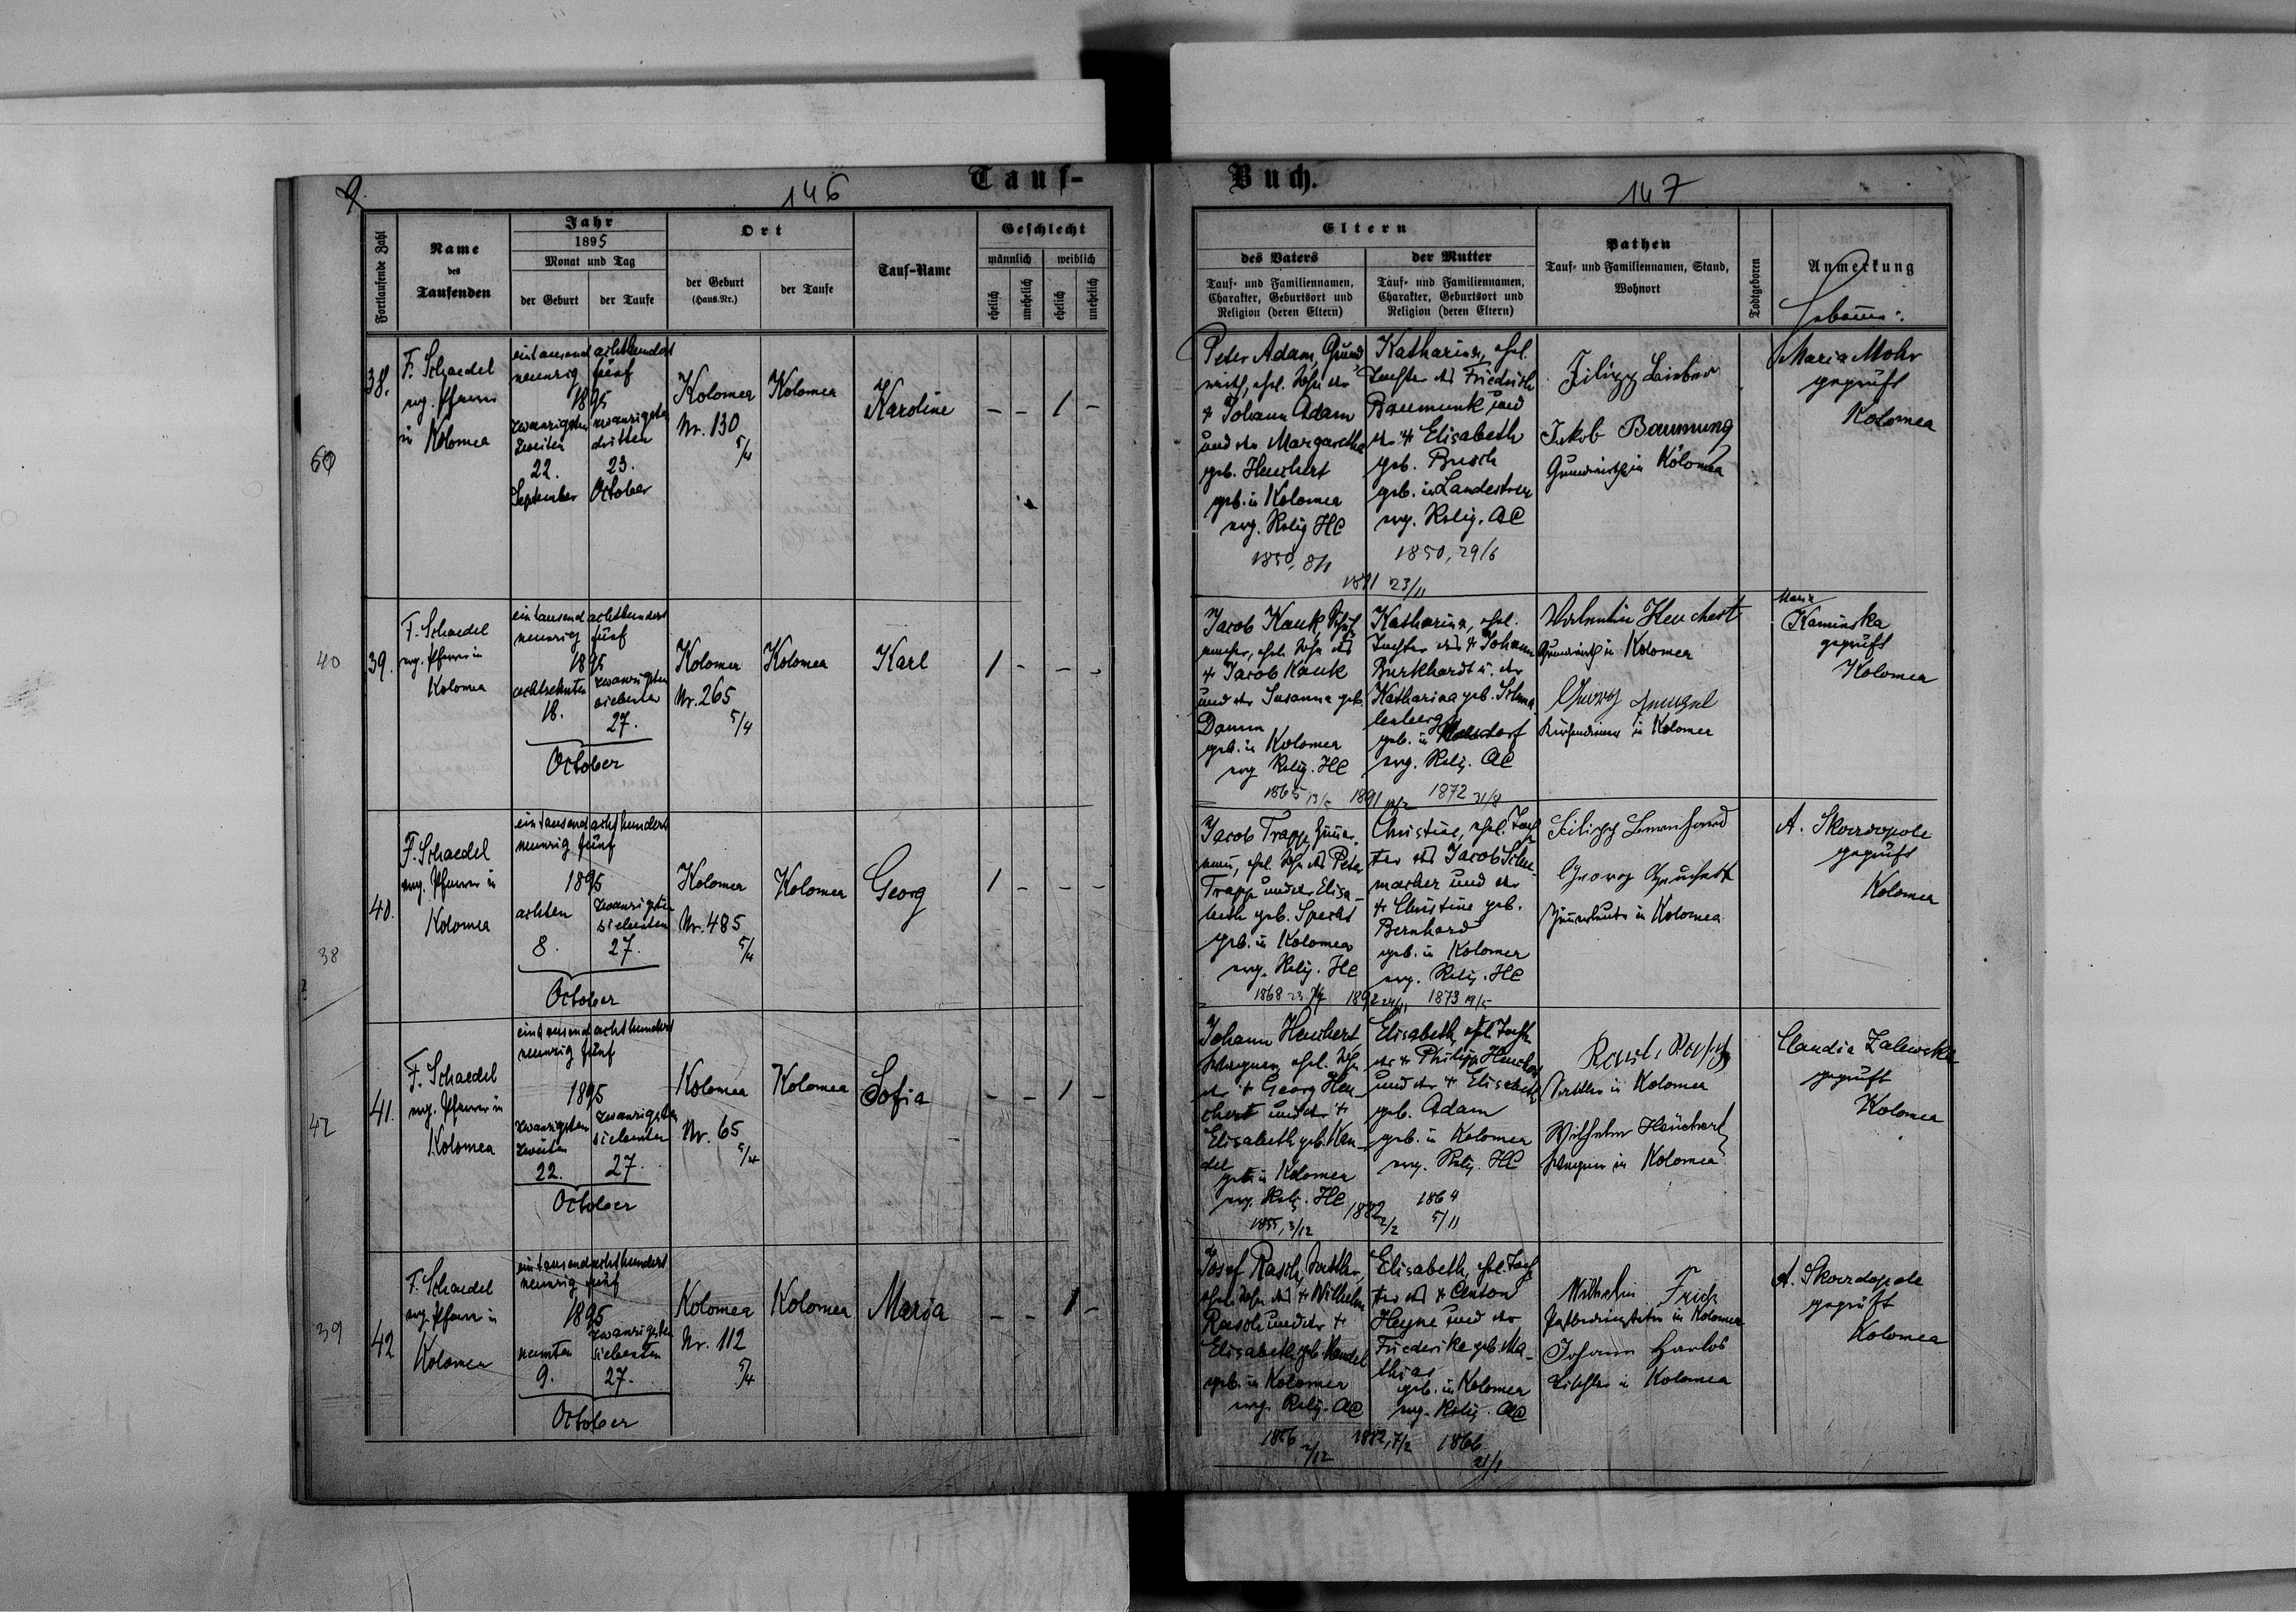 146
Tauf-
Buch.
147
Fortlaufende Zahl
Name
des
Taufenden
Jahr
1895
Monat und Tag
der Geburt
der Taufe
Ort
der Geburt
(Haus-Nr.)
der Taufe
Tauf-Name
Geschlecht
männlich
weiblich
ehelich
unehelich
ehelich
unehelich
Eltern
des Vaters
Tauf- und Familiennamen,
Charakter, Geburtsort und
Religion (deren Eltern)
der Mutter
Tauf- und Familiennamen,
Charakter, Geburtsort und
Religion (deren Eltern)
Pathen
Tauf- und Familiennamen, Stand,
Wohnort
Todtgeboren
Anmerkung
38.
F. Schaedel
evg. Pfarrer
in Kolomea
eintausend achthundert
neunzig fünf
1895
zwanzigsten
zweiten
22.
September
zwanzigsten
dritten
23.
October
Kolomea
Nr. 130
5/4
Kolomea
Karoline
- - 1 -
Peter Adam, Grund
wirth, ehel. Sohn der
† Johann Adam
und der Margaretha
geb. Heuchert
geb. in Kolomea
evg. Relig HC
1850, 8/1
Katharina, ehel.
Tochter des Friedrich
Baumunk und
der † Elisabeth
geb. Busch
geb. in Landestreu
evg. Relig. AC
1850, 29/6
1871 23/11
Filipp Bieber
Jakob Baumung
Grundwirthe in Kolomea
Maria Mohr
geprüft
Kolomea
40
39.
F. Schaedel
evg. Pfarrer in
Kolomea
eintausend achthundert
neunzig fünf
1895
achtzehnten
18.
zwanzigsten
siebenten
27.
October
Kolomea
Nr. 265
5/4
Kolomea
Karl
1 - - -
Jacob Kauk, Schuh
macher, ehel. Sohn des
† Jacob Kauk
und der Susanna geb.
Damm
geb. in Kolomea
evg Relig. HC
1865 13/5
Katharina, ehel.
Tochter des † Johann
Burkhardt u. der
Katharina geb. Schma
lenberg
geb. in
evg. Relig. AC
1891
1872 31/8
Valentin Heuchert
Grundwirth in Kolomea
Georg
Kirchendiener in Kolomea
Maria
Kaminska
geprüft
Kolomea
38
40.
F. Schaedel
evg. Pfarrer in
Kolomea
eintausend achthundert
neunzig fünf
1895
achten
8.
zwanzigsten
siebenten
27.
October
Kolomea
Nr. 485
5/4
Kolomea
Georg
1 - - -
Jacob Trapp, Zimmer
mann, ehel. Sohn des Peter
Trapp und der Elisa-
beth geb. Specht
geb. in Kolomea
evg. Relig. HC
1868
Christine, ehel. Toch
ter des Jacob Schu
macher und der
† Christine geb.
Bernhard
geb. in Kolomea
evg. Relig. HC
1892
1873 19/5
Filipp Bernhard
Georg Heuchert
Zimmerleute in Kolomea
A. Skordopole
geprüft
Kolomea
42
41.
F. Schaedel
evg. Pfarrer in
Kolomea
eintausend achthundert
neunzig fünf
1895
zwanzigsten
zweiten
22.
zwanzigsten
siebenten
27.
October
Kolomea
Nr. 65
5/4
Kolomea
Sofia
- - 1 -
Johann Heuchert,
Wagner, ehel. Sohn
der † Georg Heu-
chert und der †
Elisabeth geb. Man-
del
geb. in Kolomea
evg. Relig. HC
1855, 3/12
Elisabeth, ehel. Tochter
der † Philipp Heuchert
und der † Elisabeth
geb. Adam
geb. in Kolomea
evg. Relig. HC
1864
5/11
1882
2/2
Sattler in Kolomea
Wilhelm Heuchert
Wagner in Kolomea
Claudia Zalewska
geprüft
Kolomea
39
42
F. Schaedel
evg. Pfarrer in
Kolomea
eintausend achthundert
neunzig fünf
1895
neunten
9.
zwanzigsten
siebenten
27.
October
Kolomea
Nr. 112
5/4
Kolomea
Maria
- - 1 -
Josef Rasch, Sattler,
ehel. Sohn des † Wilhelm
Rasch und der †
Elisabeth geb. Mandel
geb. in Kolomea
evg. Relig. AC
1856 2/12
Elisabeth, ehel. Toch
ter des † Anton
Heyne und der
Friederike geb. Ma-
thias
geb. in Kolomea
evg. Relig. AC
1882, 7/2
1866
21/1
Wilhelm Frick
in Kolomea
Johann Harlos
Tischler in Kolomea
A. Skordopole
geprüft
Kolomea